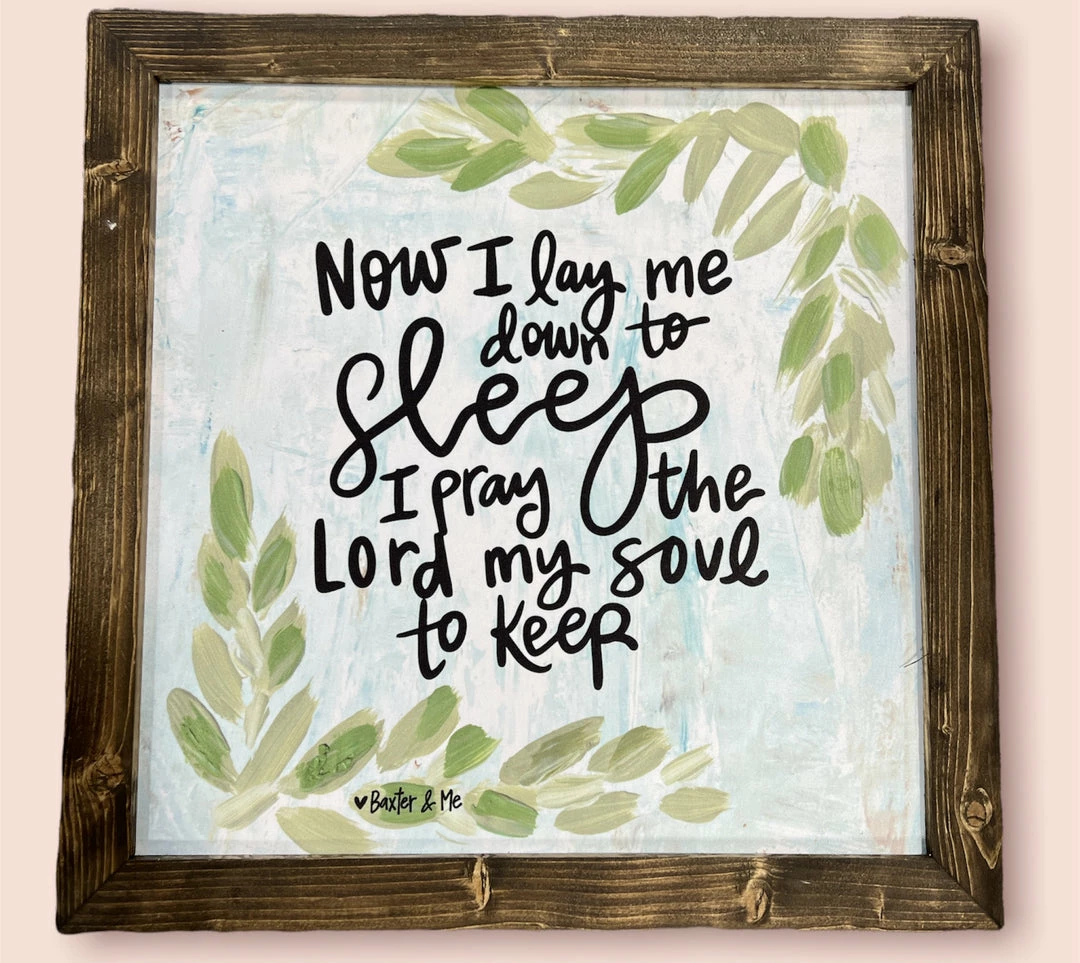 Now I lay me
down to
sleep
I pray the
Lord my soul
to keep
♥Baxter & Me